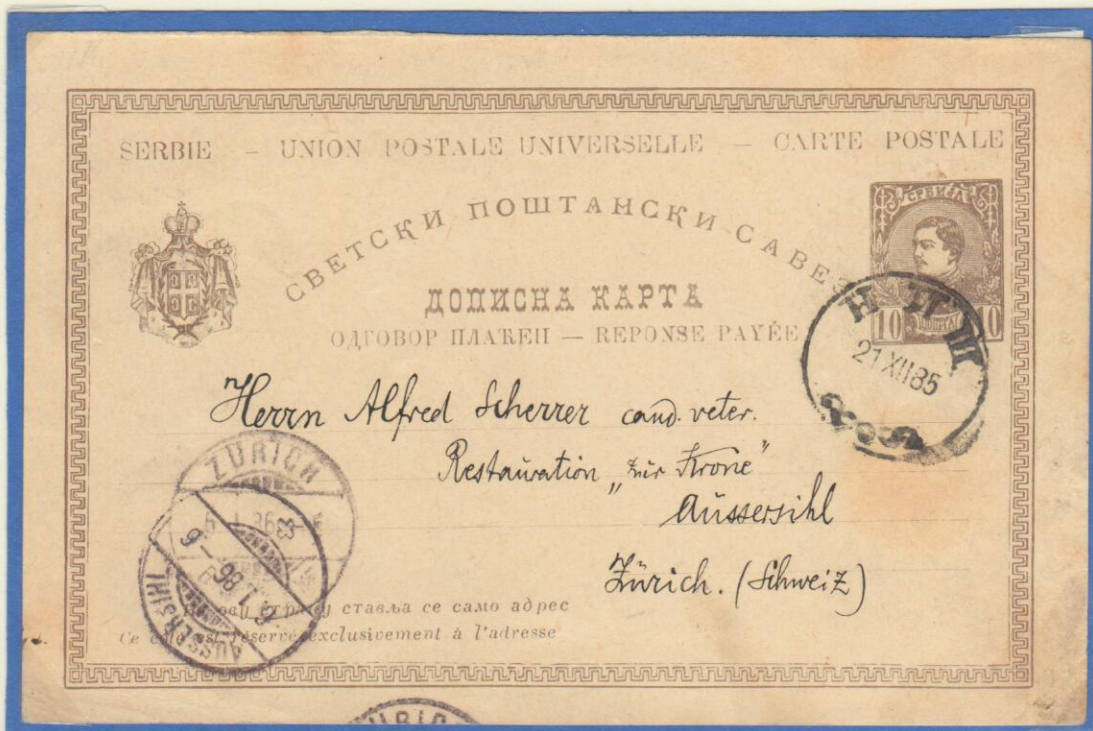 SERBIE — UNION POSTALE UNIVERSELLE — CARTE POSTALE
СВЕТСКИ ПОШТАНСКИ САВЕЗ
СРБИЈА
10 10
ДОПИСНА КАРТА
ОДГОВОР ПЛАЋЕН — REPONSE PAYÉE
НИШ
21 XII 85
Herrn Alfred Scherrer cand. veter.
Restauration „zur Krone"
Aussersihl
Zürich. (Schweiz)
ZÜRICH
AUSSERSIHL
6. I 86 – 9
страну ставља се само адрес
Ce côté est réservé exclusivement à l'adresse